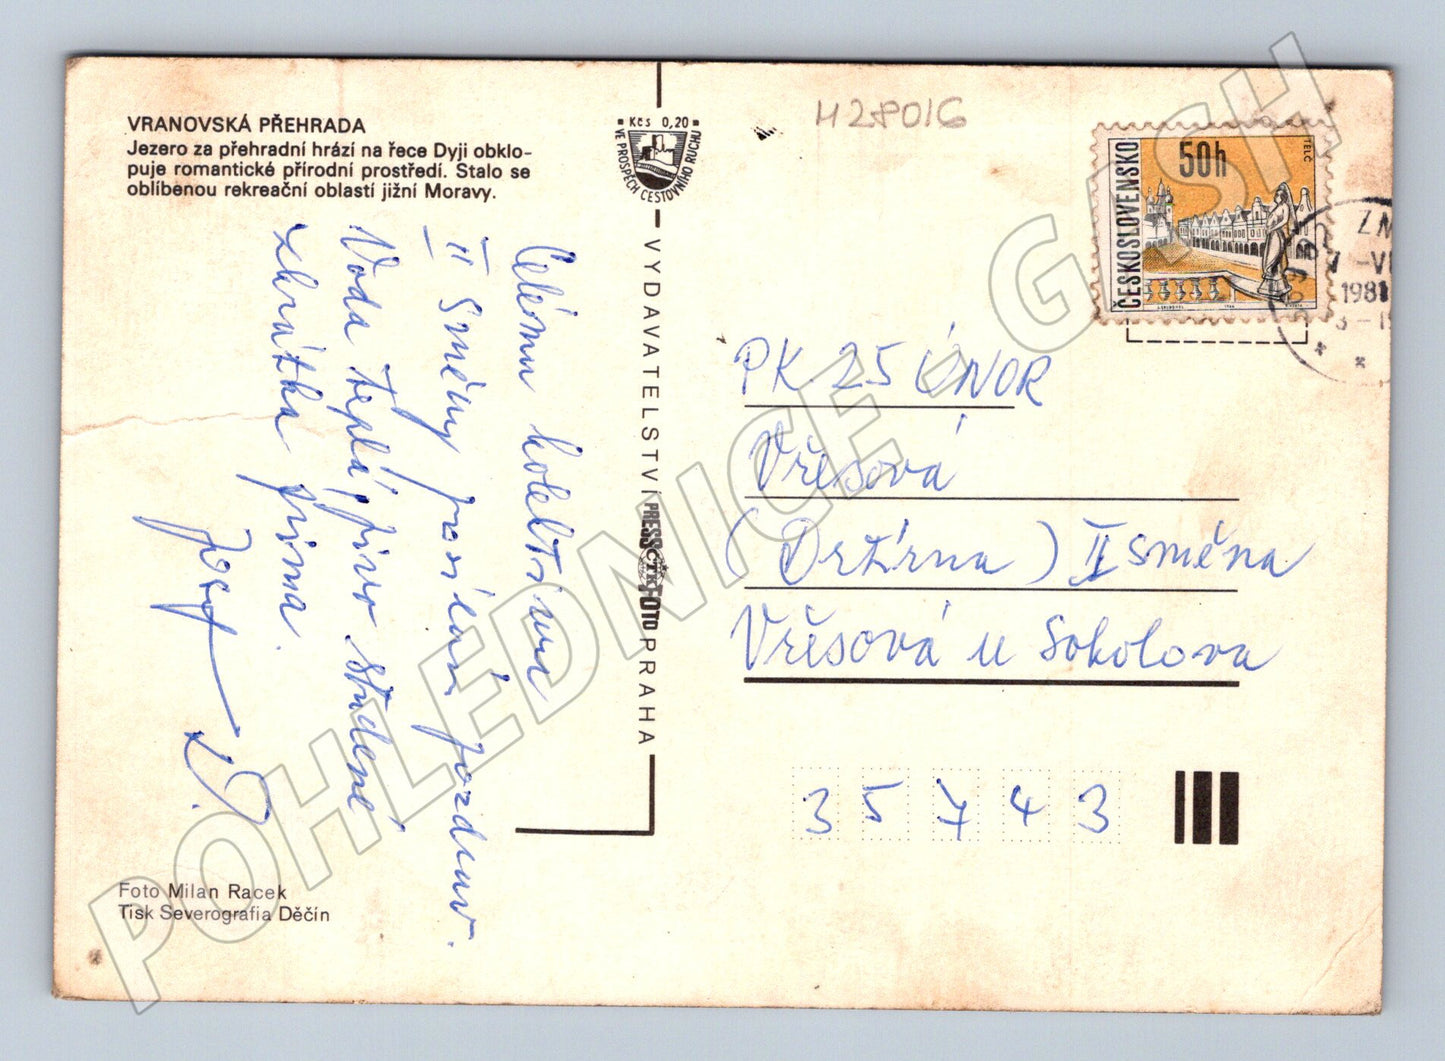 VRANOVSKÁ PŘEHRADA
Jezero za přehradní hrází na řece Dyji obklo-
puje romantické přírodní prostředí. Stalo se
oblíbenou rekreační oblastí jižní Moravy.
Celému kolektivu
II Směny posílám pozdrav.
Voda teplá, pivo studené
zkrátka prima.
Josef
Foto Milan Racek
Tisk Severografia Děčín
Kčs 0,20
VE PROSPĚCH CESTOVNÍHO RUCHU
VYDAVATELSTVÍ PRESSFOTO PRAHA
ČTK
H28016
ČESKOSLOVENSKO
50h
TELČ
ZN
1981
PK 25 ÚNOR
Vřesová
(Drtírna) II směna
Vřesová u Sokolova
35743
POHLEDNICE - GASH